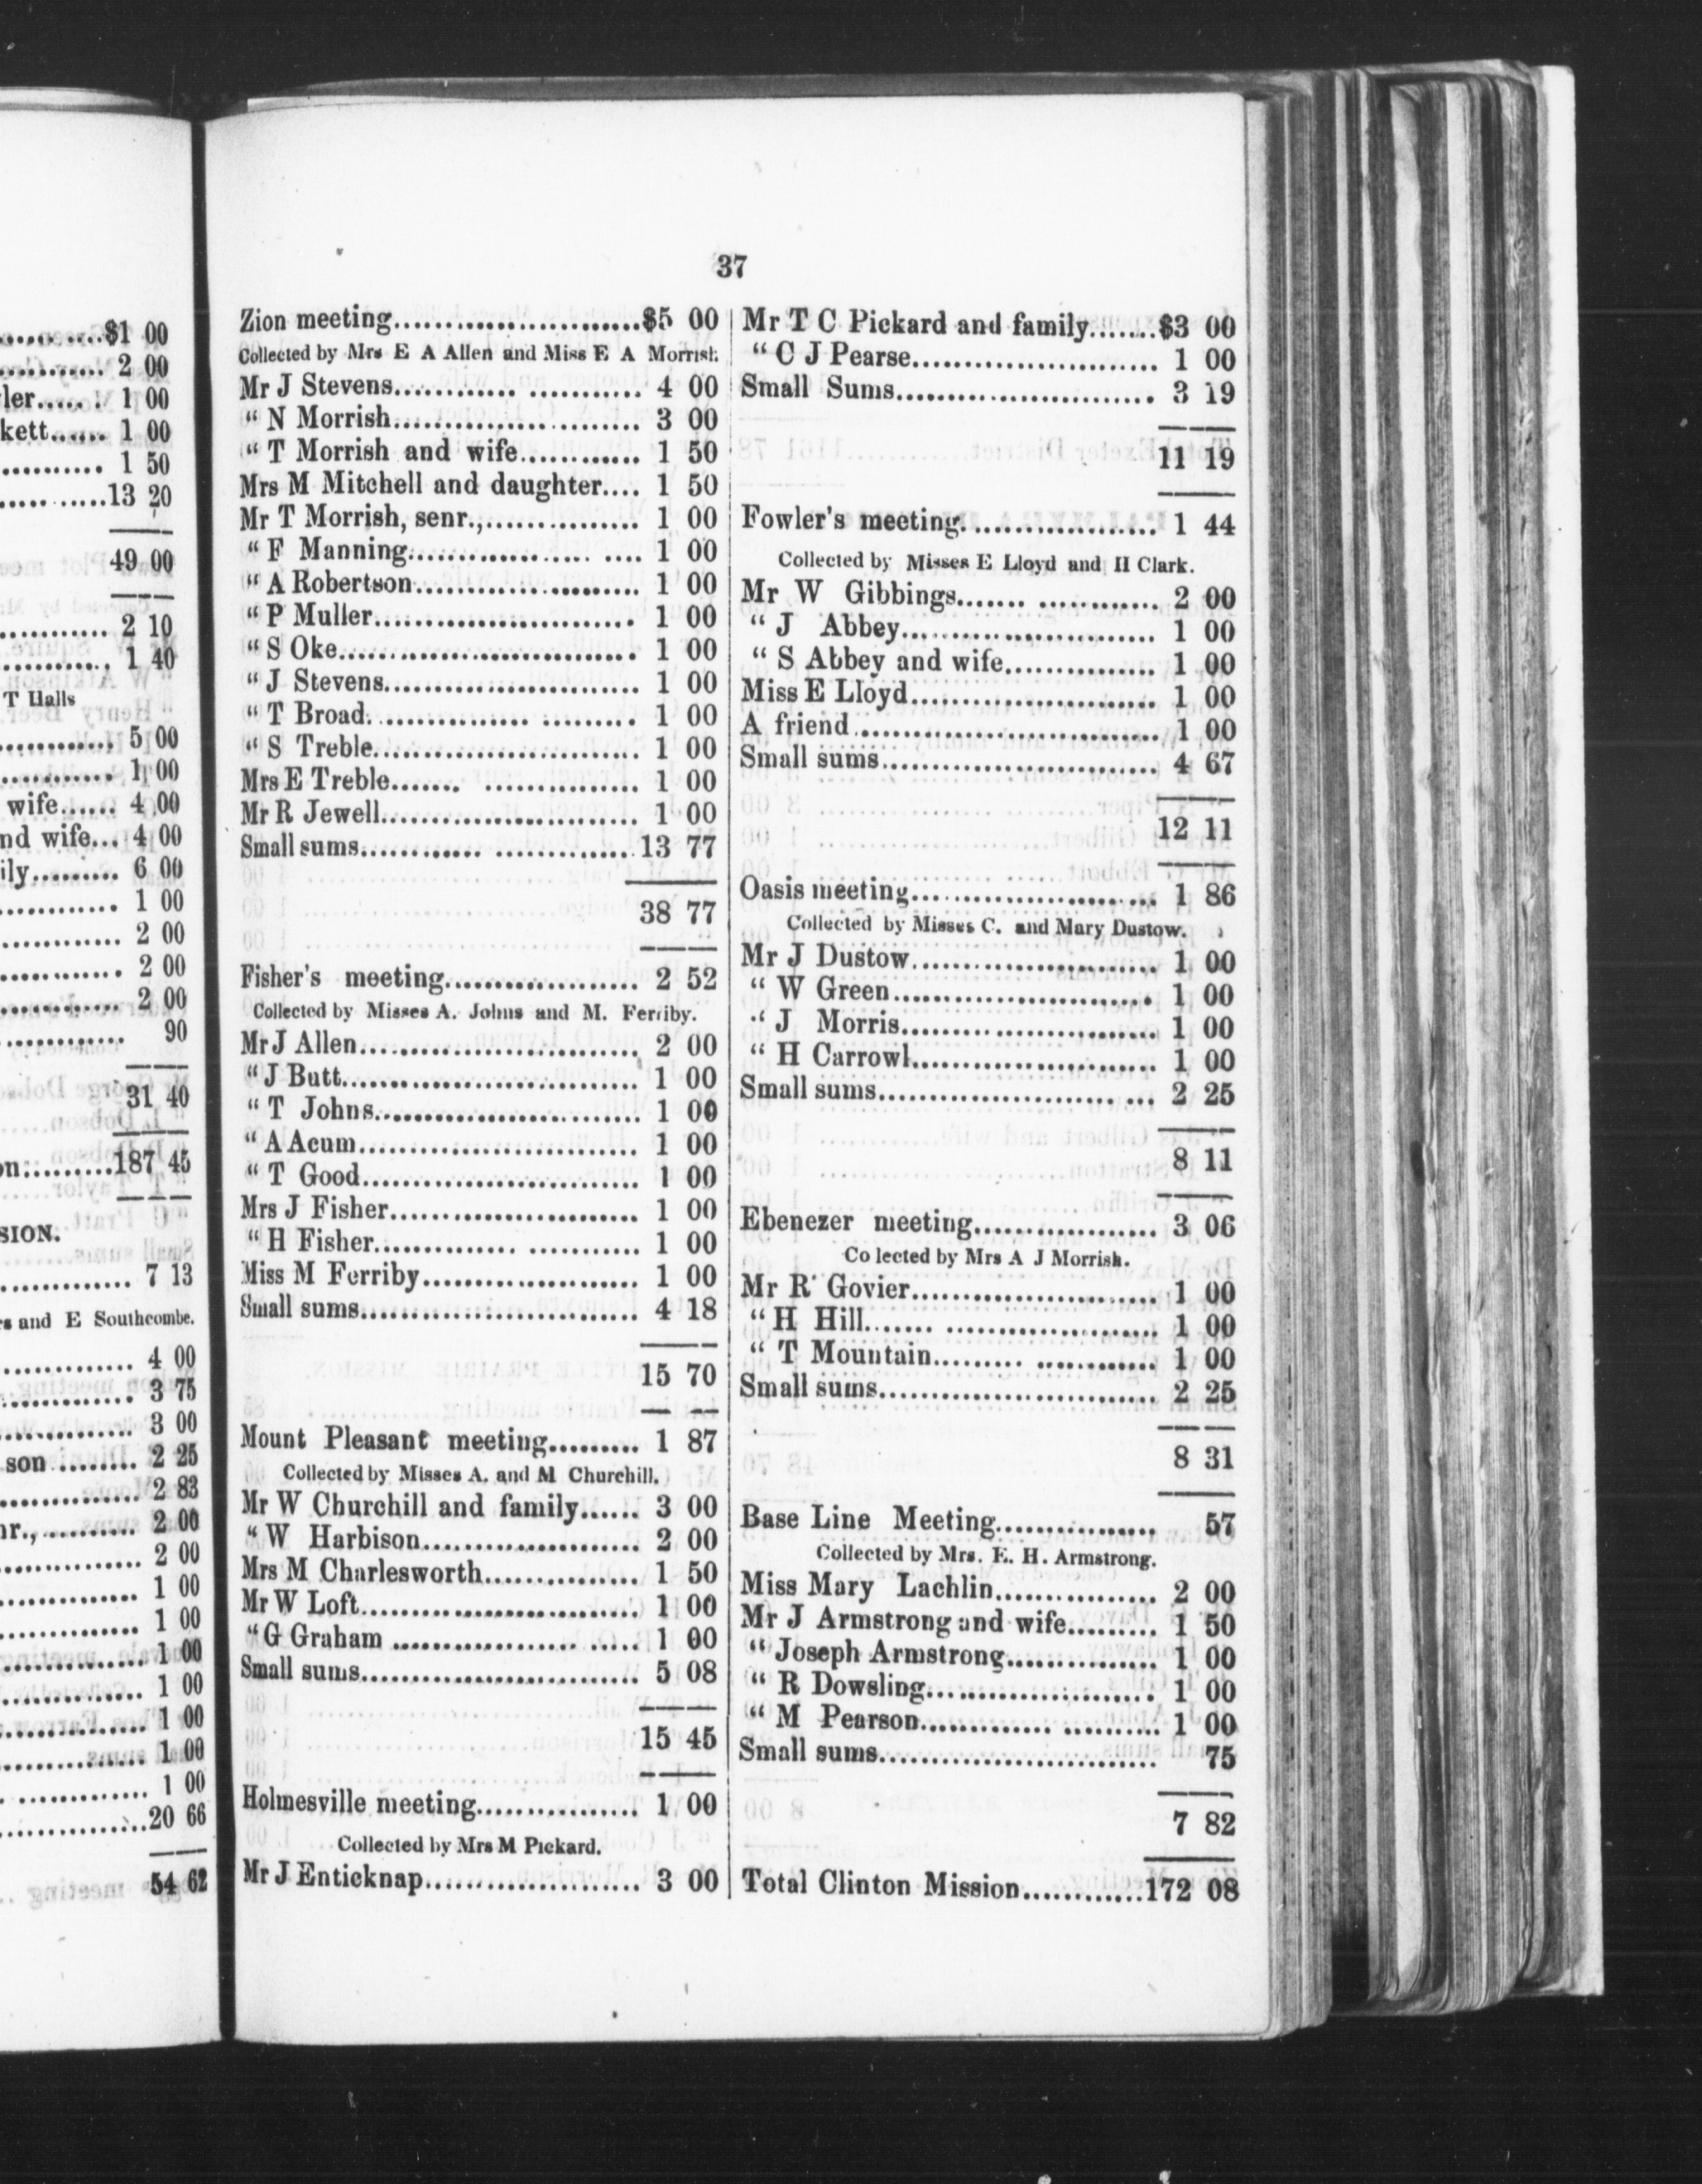 $1 00
2 00
ler...... . 1 00
kett...... 1 00
1 50
13 20
49 00
2 10
1 40
T Halls
5 00
1 00
wife...... 4 00
nd wife... 4 00
ily......... 6 00
1 00
2 00
2 00
2 00
90
31 40
n:.........187 45
SION.
7 13
s and E Southcombe.
4 00
3 75
3 00
son ........ 2 25
2 83
nr., .......... 2 00
2 00
1 00
1 00
1 00
1 00
1 00
1 00
1 00
20 66
54 62
37
Zion meeting........................$5 00
Collected by Mrs E A Allen and Miss E A Morrish.
Mr J Stevens............ ........... 4 00
“ N Morrish........................ 3 00
“ T Morrish and wife............ 1 50
Mrs M Mitchell and daughter.... 1 50
Mr T Morrish, senr.,............... 1 00
“ F Manning.................. .... 1 00
“ A Robertson...................... 1 00
“ P Muller.......................... 1 00
“ S Oke.............................. 1 00
“ J Stevens......................... 1 00
“ T Broad............... ......... 1 00
“ S Treble.......................... 1 00
Mrs E Treble....... ............... 1 00
Mr R Jewell......................... 1 00
Small sums............ ..............13 77
38 77
Fisher's meeting................... 2 52
Collected by Misses A. Johns and M. Ferriby.
Mr J Allen........................... 2 00
“ J Butt............................. 1 00
“ T Johns.......................... 1 00
“ A Acum........................... 1 00
“ T Good........................... 1 00
Mrs J Fisher........................ 1 00
“ H Fisher.............. ........... 1 00
Miss M Ferriby..................... 1 00
Small sums........................... 4 18
15 70
Mount Pleasant meeting......... 1 87
Collected by Misses A. and M Churchill.
Mr W Churchill and family...... 3 00
“ W Harbison..................... 2 00
Mrs M Charlesworth............... 1 50
Mr W Loft........................... 1 00
“ G Graham .................. ..... 1 00
Small sums........................... 5 08
15 45
Holmesville meeting................ 1 00
Collected by Mrs M Pickard.
Mr J Enticknap..................... 3 00
Mr T C Pickard and family.......$3 00
“ C J Pearse........................ 1 00
Small Sums......................... 3 19
11 19
Fowler's meeting................... 1 44
Collected by Misses E Lloyd and H Clark.
Mr W Gibbings....... ............ 2 00
“ J Abbey......................... 1 00
“ S Abbey and wife............... 1 00
Miss E Lloyd........................ 1 00
A friend.............................. 1 00
Small sums........................... 4 67
12 11
Oasis meeting........................ 1 86
Collected by Misses C. and Mary Dustow.
Mr J Dustow........................ 1 00
“ W Green......................... 1 00
“ J Morris......................... 1 00
“ H Carrowl........................ 1 00
Small sums....................... ... 2 25
8 11
Ebenezer meeting.................. 3 06
Co lected by Mrs A J Morrish.
Mr R Govier........................ 1 00
“ H Hill....... ..................... 1 00
“ T Mountain......... ............ 1 00
Small sums........................... 2 25
8 31
Base Line Meeting................ 57
Collected by Mrs. E. H. Armstrong.
Miss Mary Lachlin................ 2 00
Mr J Armstrong and wife......... 1 50
“ Joseph Armstrong............... 1 00
“ R Dowsling...................... 1 00
“ M Pearson............. .......... 1 00
Small sums........................... 75
7 82
Total Clinton Mission............172 08